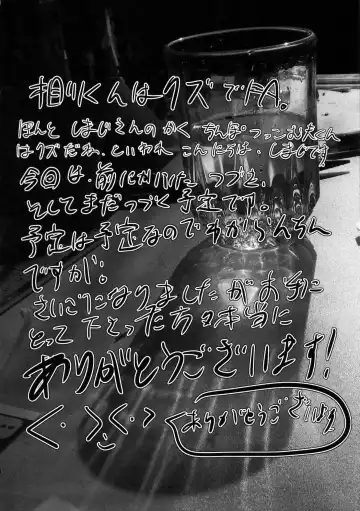 相じくんはクズでFA。
ほんと しまじさんのかく ちんぽつっこむ大くん
はクズだね、といわれ こんにちは、しまじです
今回は、前にかいた つづき、
そしてまだつづく予定です。
予定は予定なのでわからんちん
ですが。
さいごになりましたがお手に
とって下さった方々本当に
ありがとうございます!
<・>こ<・>
ありがとうございます